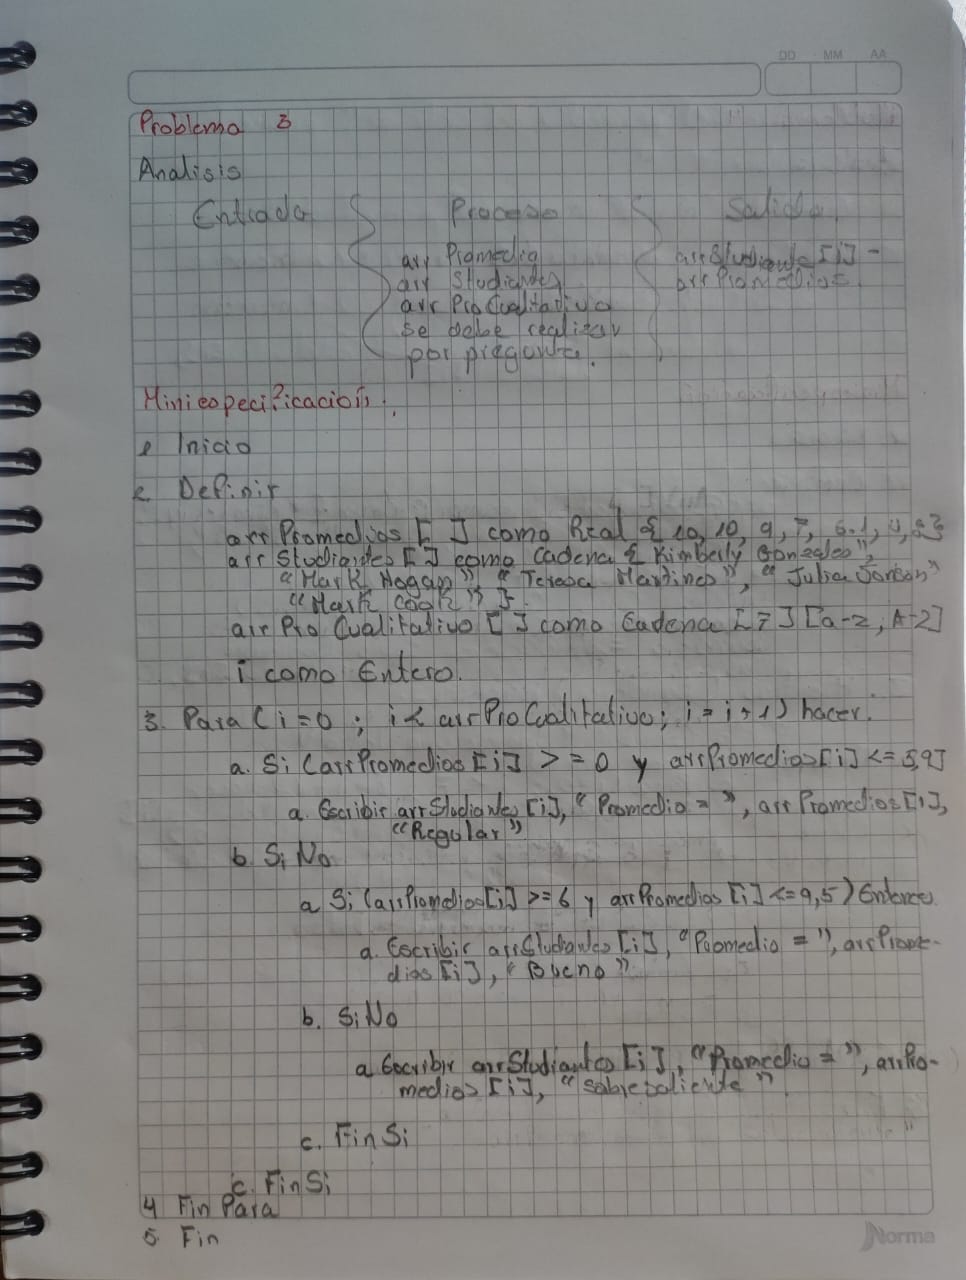 DD MM AA
Problema 3
Analisis
Entrada Proceso Salida
arr Promedio arrStudiante [i] -
arr Studiantes arr Promedios.
arr Pro Cualitativo
se debe realizar
por pregunta.
Miniespecificación.
Inicio
2. Definir
arr Promedios [ ] como Real { 10, 10, 9, 7, 6.1, 4,
arr Studiantes [ ] como Cadena { Kimberly Gonzales",
"Mark Hogan", "Teresa Martines", "Julia
"Mark Cook" }
arr Pro Cualitativo [ ] como Cadena [7] [a-z, A-Z]
i como Entero.
3. Para (i=0; i< arrProCualitativo; i=i+1) hacer.
a. Si (arrPromedios [i] >= 0 y arrPromedios[i] <= 5,9]
a. Escribir arrStudiantes [i], "Promedio = ", arrPromedios [i],
"Regular"
b. Si No
a Si (arrPromedios[i] >= 6 y arrPromedios [i] <= 9,5) Entonces
a. Escribir arrStudiantes [i], "Promedio = ", arrProme-
dios [i], "Bueno"
b. SiNo
a Escribir arrStudiantes [i], "Promedio = ", arrPro-
medios [i], "sobresaliente"
c. FinSi
c. FinSi
4 Fin Para
5. Fin
Norma